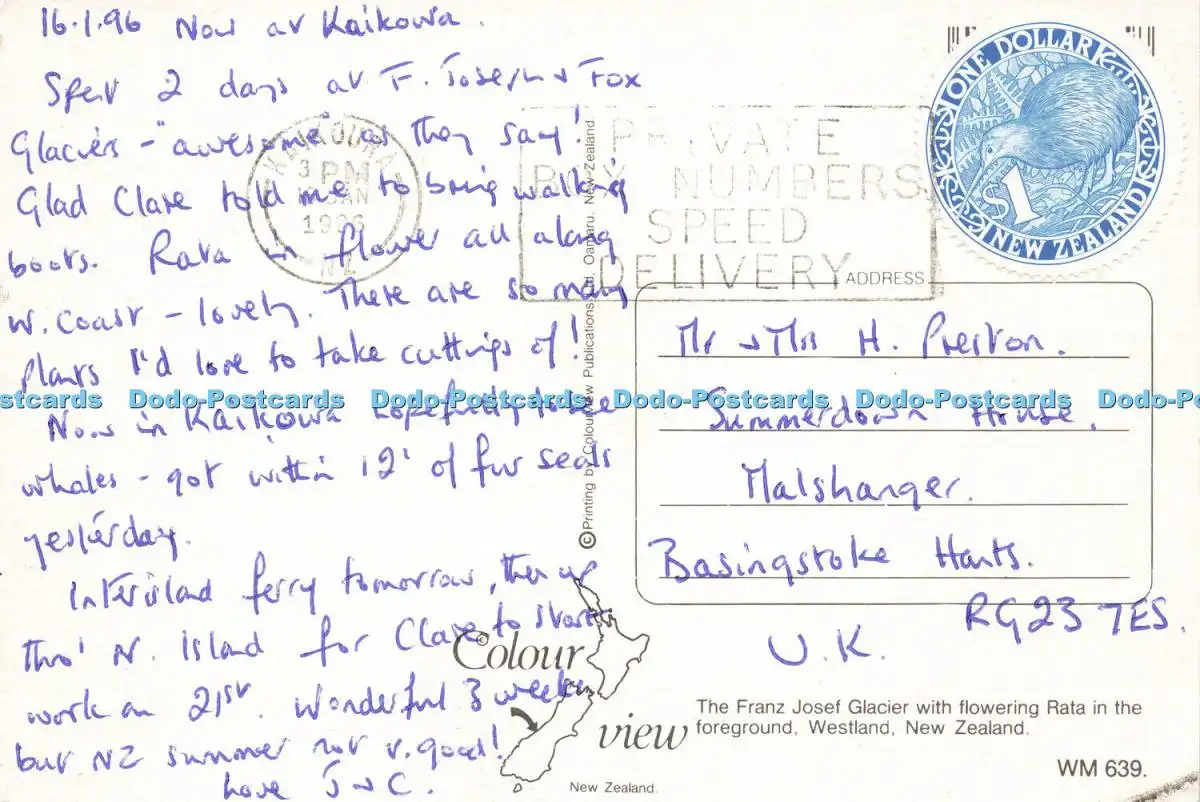 16.1.96 Now at Kaikowa.
Spent 2 days at F. Joseph & Fox
Glaciers - "awesome" as they say!
Glad Clare told me to bring walking
boots. Rata in flower all along
W. Coast - lovely. There are so many
plants I'd love to take cuttings of!
Now in Kaikowa hopefully to see
whales - got within 12' of fur seals
yesterday.
Interisland ferry tomorrow, then up
thro' N. Island for Clare to start
work on 21st. Wonderful 3 weeks
but NZ summer not v. good!
Love J & C.
KAIKOURA
3 PM
JAN
1996
NZ
PRIVATE
BOX NUMBERS
SPEED
DELIVERY
ONE DOLLAR
$1
NEW ZEALAND
ADDRESS
Mr & Mrs H. Preston.
Summerdown House.
Malshanger.
Basingstoke Hants.
RG23 7ES.
U.K.
© Printing by Colourview Publications Ltd. Oamaru. New Zealand.
© Colour
view
New Zealand.
The Franz Josef Glacier with flowering Rata in the
foreground, Westland, New Zealand.
WM 639.
Dodo-Postcards Dodo-Postcards Dodo-Postcards Dodo-Postcards Dodo-Postcards